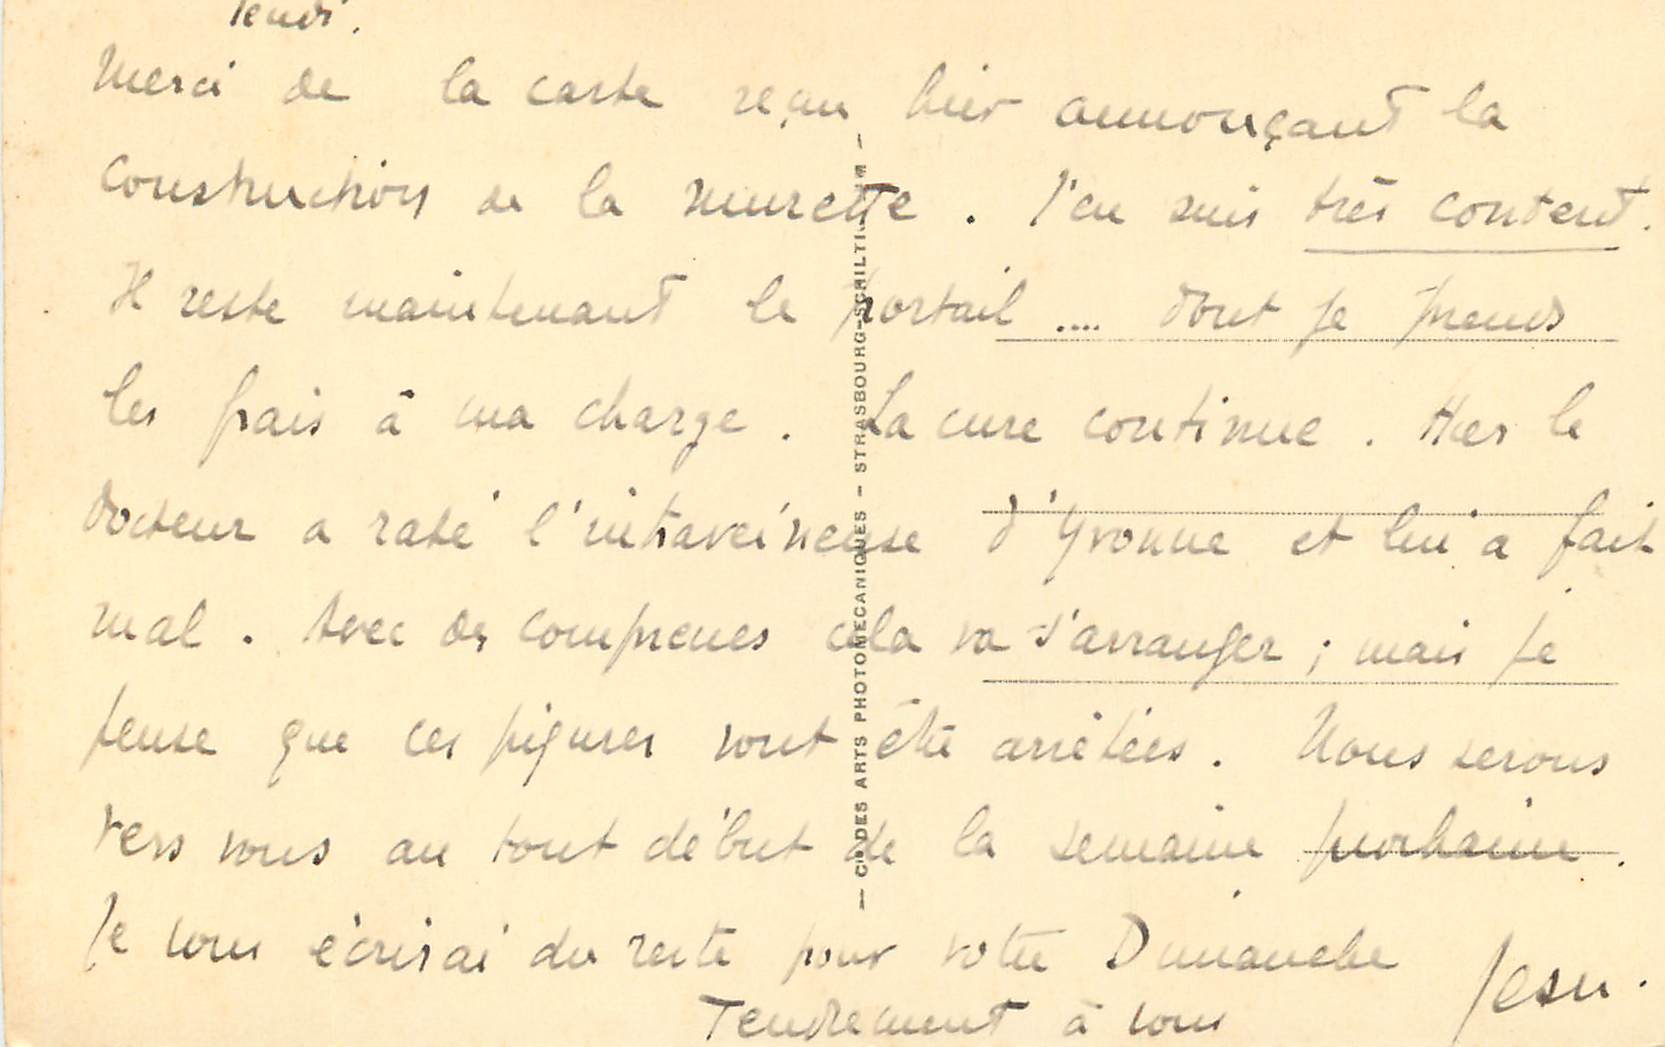 Merci de la carte reçu hier annonçant la
construction de la murette. J'en suis très content.
Il reste maintenant le portail .... dont je prends
les frais à ma charge. La cure continue. Hier le
docteur a raté l'intraveineuse d'Yvonne et lui a fait
mal. Avec des compresses cela va s'arranger ; mais je
pense que ces piqures vont être arrêtées. Nous serons
vers vous au tout début de la semaine prochaine.
Je vous écrirai du reste pour votre Dimanche
Tendrement à vous
— CIE DES ARTS PHOTOMECANIQUES – STRASBOURG-SCHILTI